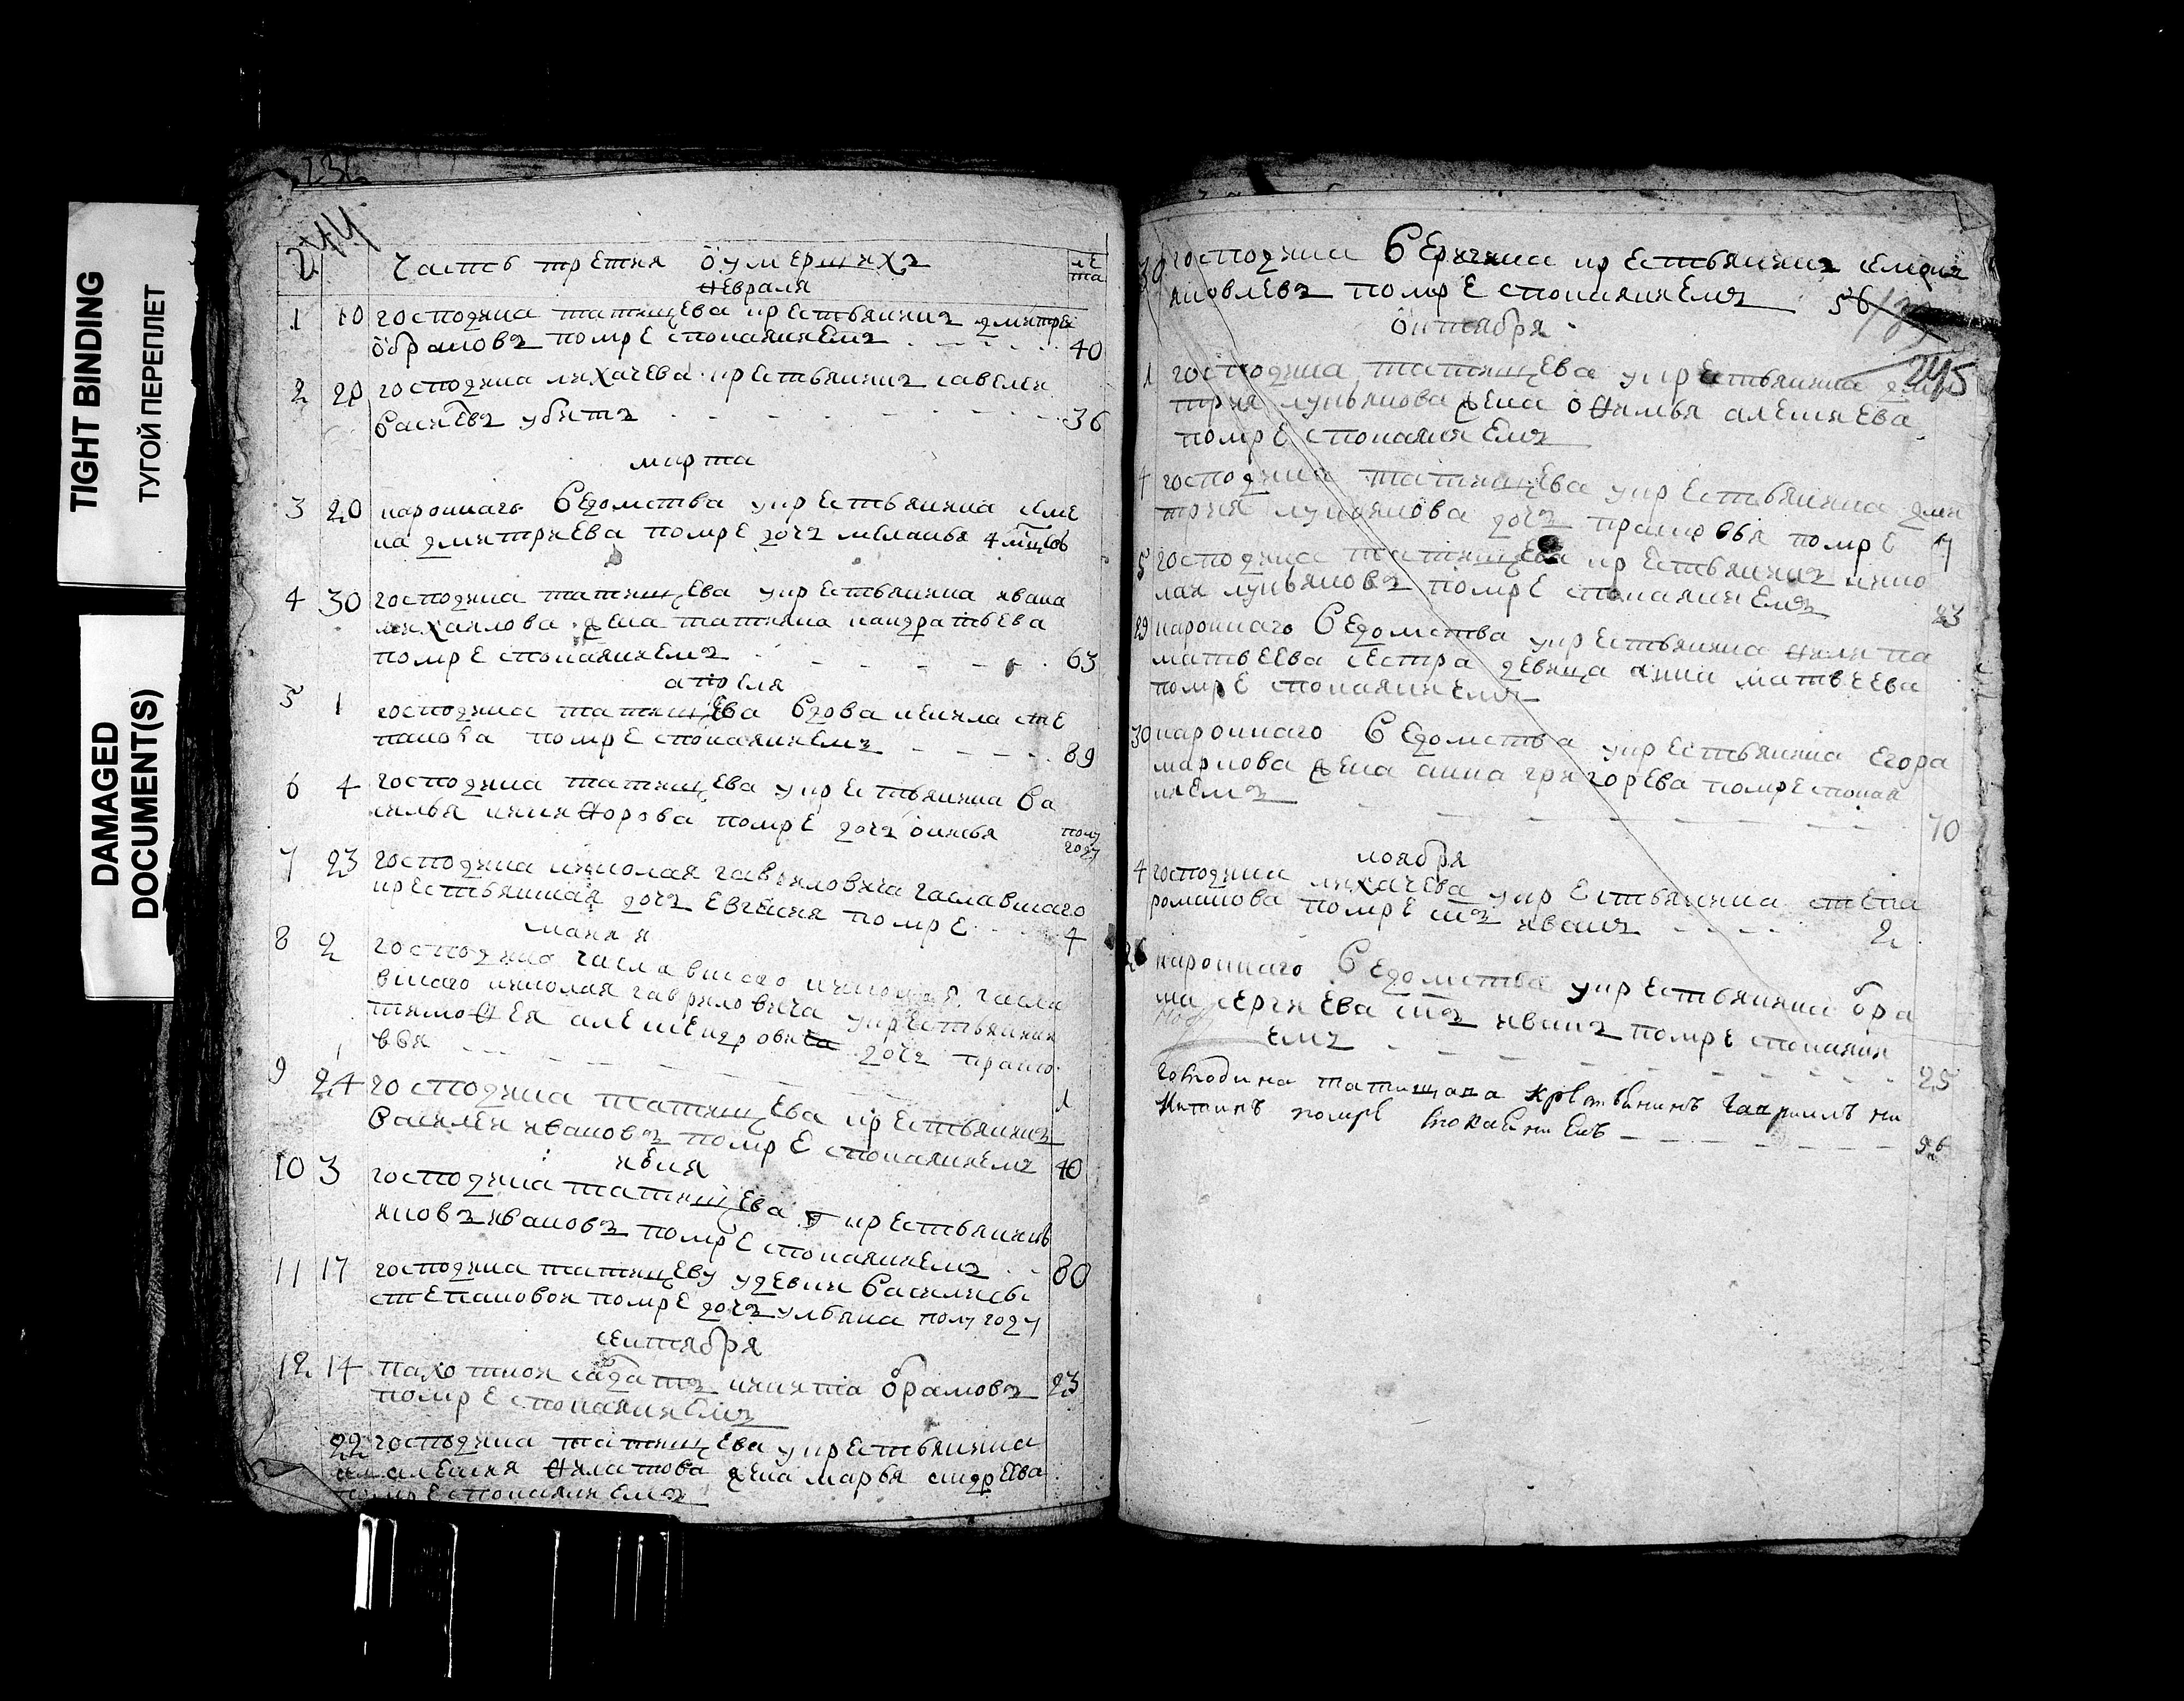 TIGHT BINDING
ТУГОЙ ПЕРЕПЛЕТ
DAMAGED
DOCUMENT(S)
232
244
Часть третия оумершихъ
лета
февраля
1 10 господина татищева крестьянинъ дмитрей
обрамовъ помре спокаяниемъ 40
2 20 господина лихачева крестьянинъ савелеи
васиевъ убитъ 36
марта
3 20 кароннаго ведомства укрестьянина семе
на дмитриева помре дочъ меланья 4 мцов
4 30 господина татищева укрестьянина ивана
михаилова жена татияна кандратьева
помре спокаяниемъ 63
апреля
5 1 господина татищева вдова степа
панова помре спокаяниемъ 89
6 4 господина татищева укрестьянина ва
силья никифорова помре дочъ полу
году
7 23 господина николая гавриловича чаславскаго
крестьянина дочъ евгения помре 4
маия
8 2 господина николая
гавриловича укрестьянина
тимофея александровича дочъ праско
вья 1
9 24 господина татищева крестьянинъ
василеи ивановъ помре спокаяниемъ 40
июня
10 3 господина татищева крестьянинъ
яковъ ивановъ помре спокаяниемъ 80
11 17 господина татищеву удевки василисы
степановои помре дочъ ульяна полугоду
сентября
12 14 пахотнои салдатъ никита обрамовъ 23
помре спокаяниемъ
22 господина татищева укрестьянина
алексия филатова жена марья андреева
помре спокаяниемъ
30 господина крестьянинъ семенъ
яковлевъ помре спокаяниемъ 56
октября
245
1 господина татищева укрестьянина дми
трия лукьянова жена офимья алексиева
помре спокаяниемъ
4 господина татищева укрестьянина дми
трия лукьянова дочъ прасковья помре 7
5 господина татищева крестьянинъ нико
лаи лукьяновъ помре спокаяниемъ 23
29 кароннаго ведомства укрестьянина филипа
матвеева сестра девица анна матвеева
помре спокаяниемъ
30 кароннаго ведомства укрестьянина егора
маркова жена анна григорева помре спокая
ниемъ 70
ноября
4 господина лихачева укрестьянина степа
романова помре снъ иванъ 2
26 кароннаго ведомства укрестьянина обра
ма сергиева снъ иванъ помре спокаяни
емъ 25
господина татищева крестьянинъ гавриилъ ни
китинъ помре спокаяниемъ